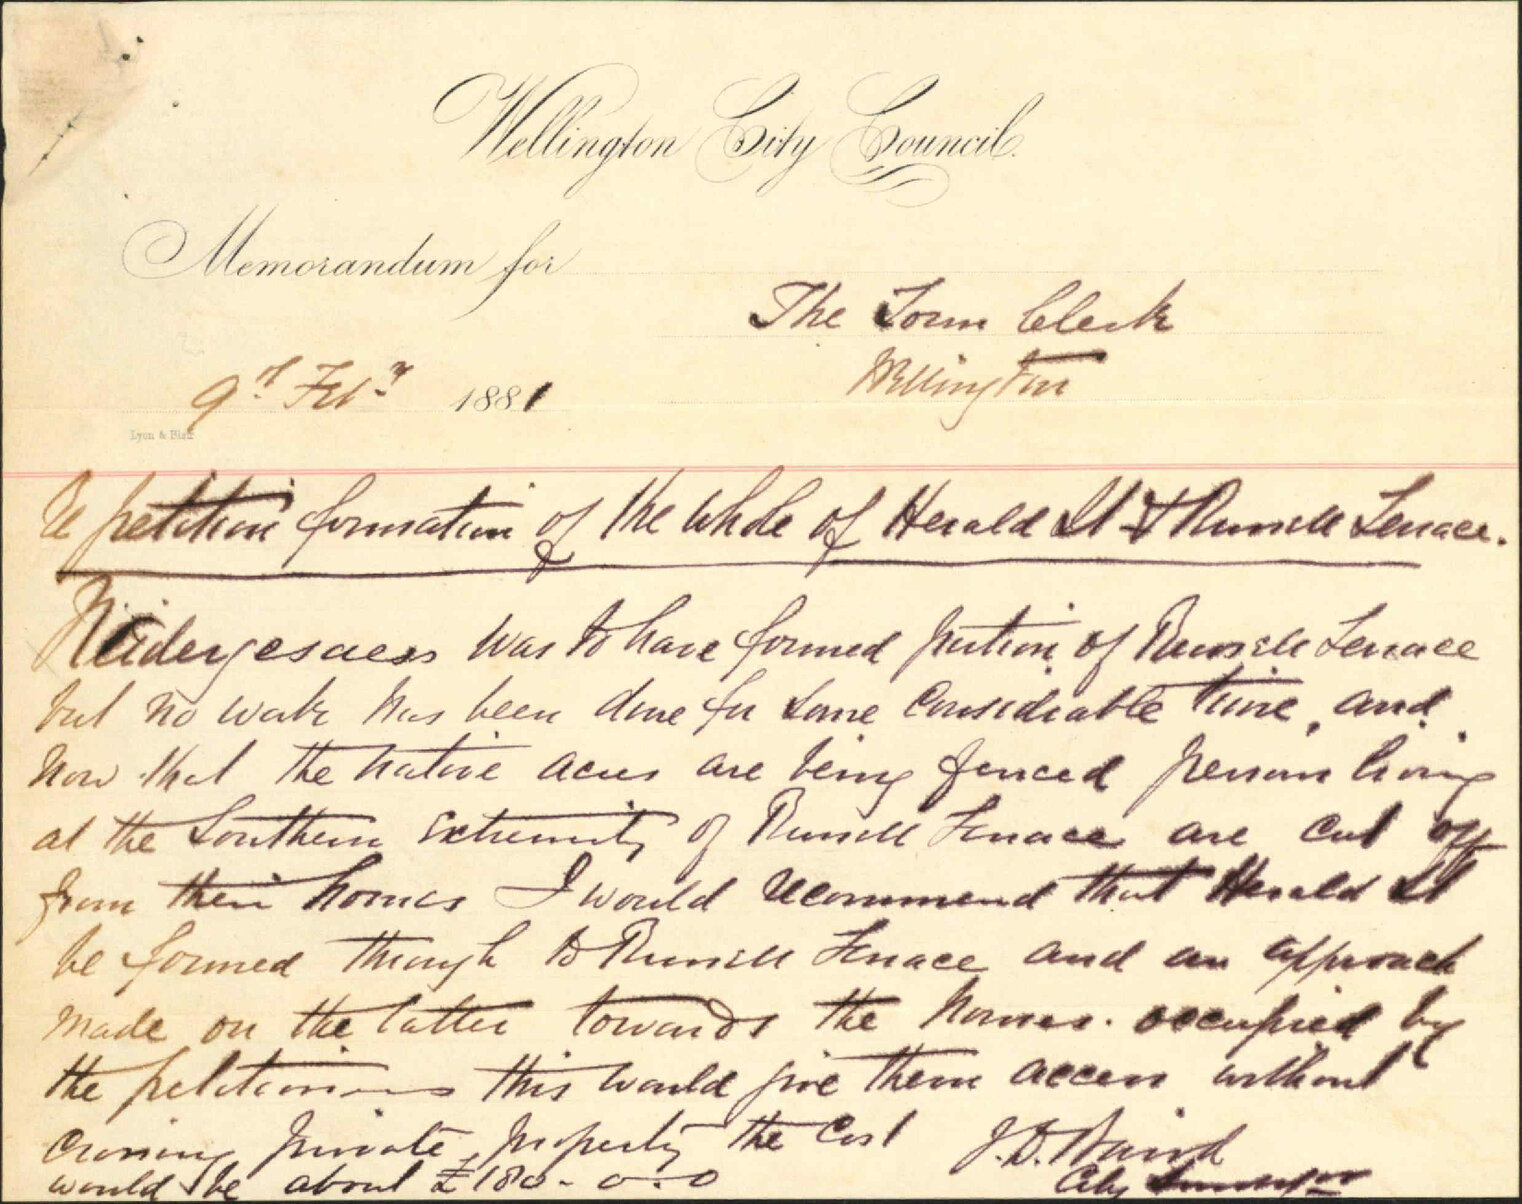 Wellington City Council.
Memorandum for
The Town Clerk
Wellington
9th Feby 1881
Lyon & Blair
Re petition formation of the whole of Herald St & Russell Terrace.
was to have formed portion of Russell Terrace
but no work has been done for some considerable time, and
now that the native acres are being fenced persons living
at the Southern extremity of Russell Terrace are cut off
from their homes I would recommend that Herald St
be formed through to Russell Terrace and an approach
made on the latter towards the homes. occupied by
the petitioners this would give them access without
crossing private property the cost
would be about £180-0.0
J.D. Baird
City Surveyor